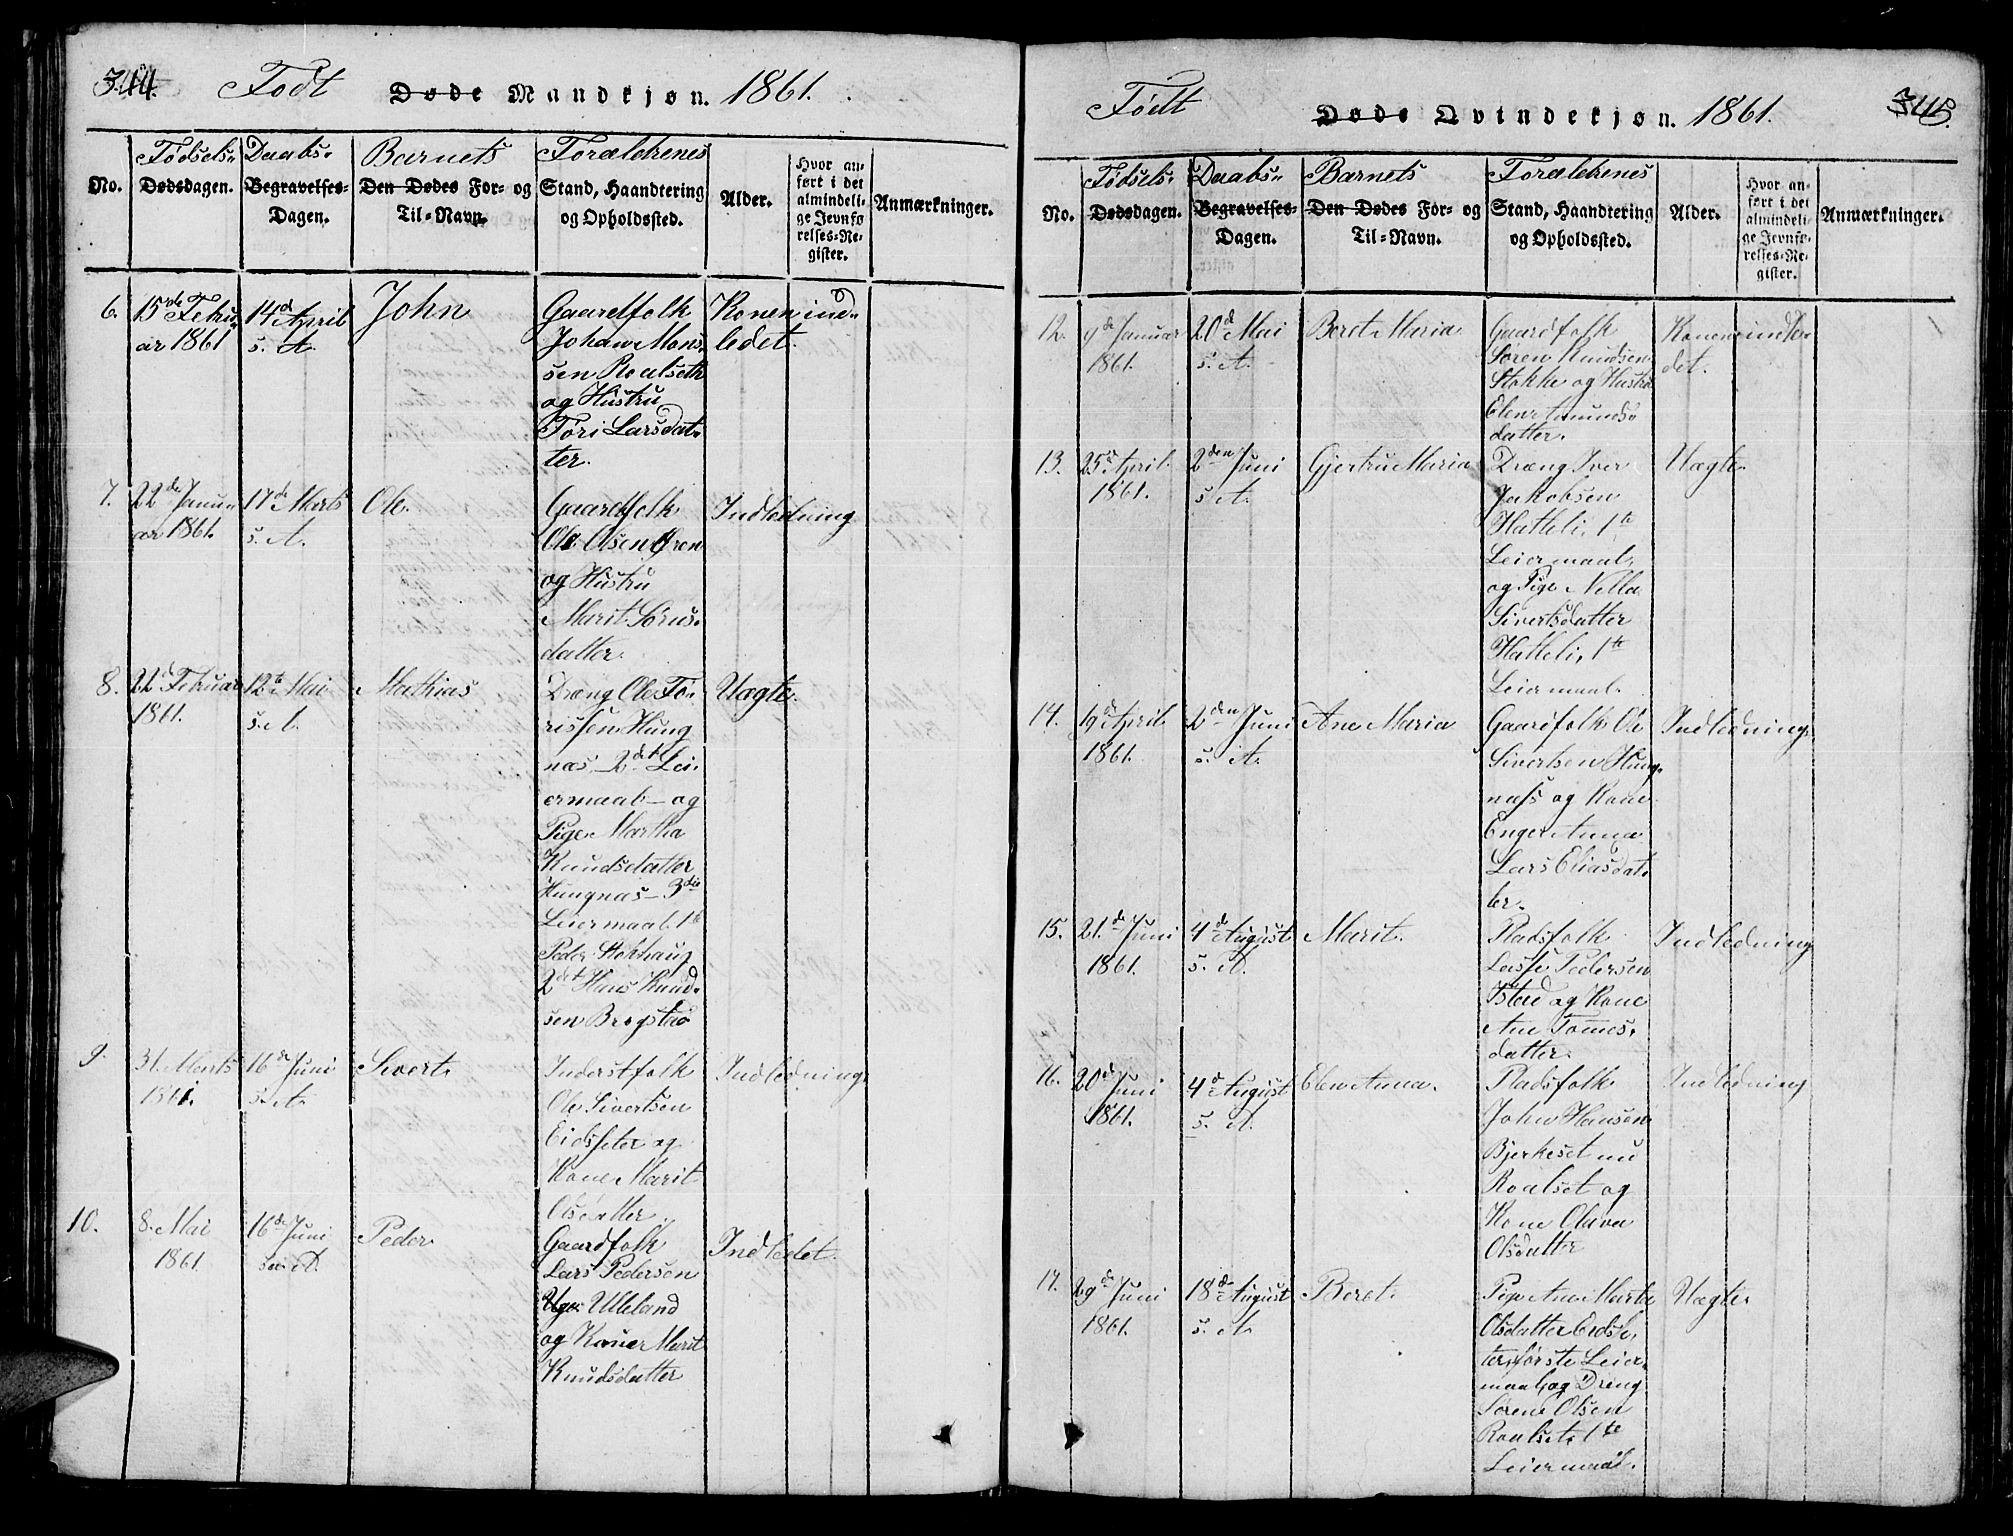 344.
Født Døde Mandkjøn. 1861.
No.
Fødsels-
Dødsdagen.
Daabs-
Begravelses-
Dagen.
Barnets
Den Dødes For- og
Til-Navn.
Forældrenes
Stand, Haandtering
og Opholdssted.
Alder.
Hvor an-
ført i det
almindeli-
ge Jevnfø-
relses-Re-
gister.
Anmærkninger.
6.
15de Febru-
ar 1861
14d April
s. A.
John
Gaardfolk
Johan Mons-
sen Roalseth
og Hustru
Tori Larsdat-
ter.
Konen ind-
ledet.
7.
22de Janu-
ar 1861.
17de Marts
s. A.
Ole.
Gaardfolk
Ole Olsen Øren
og Hustru
Marit Sørus-
datter.
Indledning
8.
22d Februar
1861.
12te Mai
s. A.
Mathias
Dræng Ole To-
rissen Hung-
næs 2det Lei-
ermaal - og
Pige Martha
Knudsdatter
Hungnæs - 3die
Leiermaal 1te
Peder Stokhaug
2det Hans Knud-
sen Brogstad
Uægte.
9.
31. Marts
1861.
16de Juni
s. A.
Sivert.
Inderstfolk
Ole Sivertsen
Eidssæter og
Kone Marit
Olsdatter.
Indledning.
10.
8. Mai
1861.
16de Juni
s. A.
Peder.
Gaardfolk
Lars Pedersen
Ulleland
og Kone Marit
Knudsdatter
Indledet.
345.
Født Døde Qvindekjøn. 1861.
No.
Fødsels-
Dødsdagen.
Daabs-
Begravelses-
Dagen.
Barnets
Den Dødes For- og
Til-Navn.
Forældrenes
Stand, Haandtering
og Opholdssted.
Alder.
Hvor an-
ført i det
almindeli-
ge Jevnfø-
relses-Re-
gister.
Anmærkninger.
12.
9de Januar
1861.
20d Mai
s. A.
Beret Maria
Gaardfolk
Søren Knudsen
Stokke og Hustru
Elen Amunds-
datter.
Konen indle-
det.
13.
25d April
1861.
2den Juni
s. A.
Gjertru Maria
Dræng Iver
Jakobsen
Hatteli, 1te
Leiermaal,
og Pige Nille
Sivertsdatter
Hatteli, 1te
Leiermaal.
Uægte.
14.
19d April
1861.
2den Juni
s. A.
Ane Maria
Gaardfolk Ole
Sivertsen Hung-
næss og Kone
Enger Anna
Lars Eliasdat-
ter.
Indledning.
15.
21.de Juni
1861.
4de August
s. A.
Marit.
Pladsfolk
Lasse Pedersen
Istad og Kone
Ane Tomes-
datter.
Indledning
16.
20d Juni
1861.
4d August
s. A.
Elen Anna.
Pladsfolk
John Hansen
Bjerkeset nu
Roalset og
Kone Olava
Olsdatter
Indledning
17.
29de Juni
1861.
18de August
s. A.
Beret.
Pige Ane Marta
Olsdatter Eidsæ-
ter, første Leier-
maal og Dreng
Sørene Olsen
Roalset, 1te
Leiermaal.
Uægte.